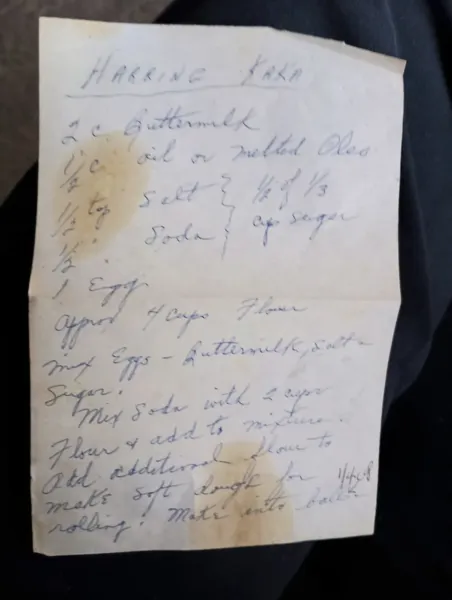 HARRING KAKA
2 c. Buttermilk
1/2 c. oil or melted Oleo
1/2 tsp salt } 1/2 of 1/3
1/2 " Soda } cup sugar
1 Egg
Approx 4 cups Flour
Mix Eggs - Buttermilk, Salt &
Sugar.
Mix Soda with 2 cups
Flour & add to mixture.
Add additional flour to
make soft dough for
rolling. Make into balls